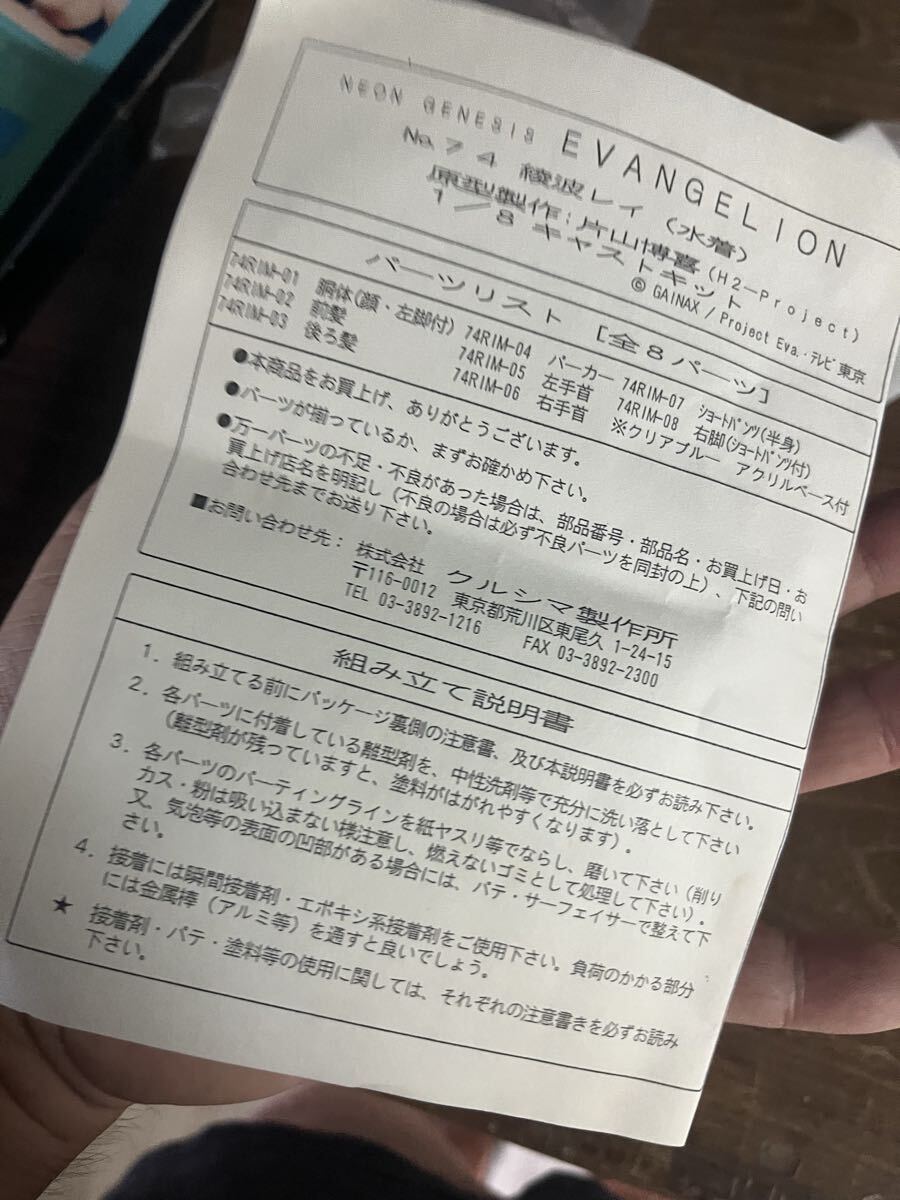 NEON GENESIS EVANGELION
No.74 綾波レイ(水着)
原型製作:片山博喜(H2-Project)
1/8 キャストキット
© GAINAX / Project Eva.・テレビ東京
パーツリスト [全8パーツ]
74RIM-01 胴体(顔・左脚付) 74RIM-04 パーカー 74RIM-07 ショートパンツ(半身)
74RIM-02 前髪 74RIM-05 左手首 74RIM-08 右脚(ショートパンツ付)
74RIM-03 後ろ髪 74RIM-06 右手首 ※クリアブルー アクリルベース付
●本商品をお買上げ、ありがとうございます。
●パーツが揃っているか、まずお確かめ下さい。
●万一パーツの不足・不良があった場合は、部品番号・部品名・お買上げ日・お
買上げ店名を明記し(不良の場合は必ず不良パーツを同封の上)、下記の問い
合わせ先までお送り下さい。
■お問い合わせ先: 株式会社 クルシマ製作所
〒116-0012 東京都荒川区東尾久 1-24-15
TEL 03-3892-1216 FAX 03-3892-2300
組み立て説明書
1. 組み立てる前にパッケージ裏側の注意書、及び本説明書を必ずお読み下さい。
2. 各パーツに付着している離型剤を、中性洗剤等で充分に洗い落として下さい
(離型剤が残っていますと、塗料がはがれやすくなります)。
3. 各パーツのパーティングラインを紙ヤスリ等でならし、磨いて下さい(削り
カス・粉は吸い込まない様注意し、燃えないゴミとして処理して下さい)。
又、気泡等の表面の凹部がある場合には、パテ・サーフェイサーで整えて下
さい。
4. 接着には瞬間接着剤・エポキシ系接着剤をご使用下さい。負荷のかかる部分
には金属棒(アルミ等)を通すと良いでしょう。
★ 接着剤・パテ・塗料等の使用に関しては、それぞれの注意書きを必ずお読み
下さい。